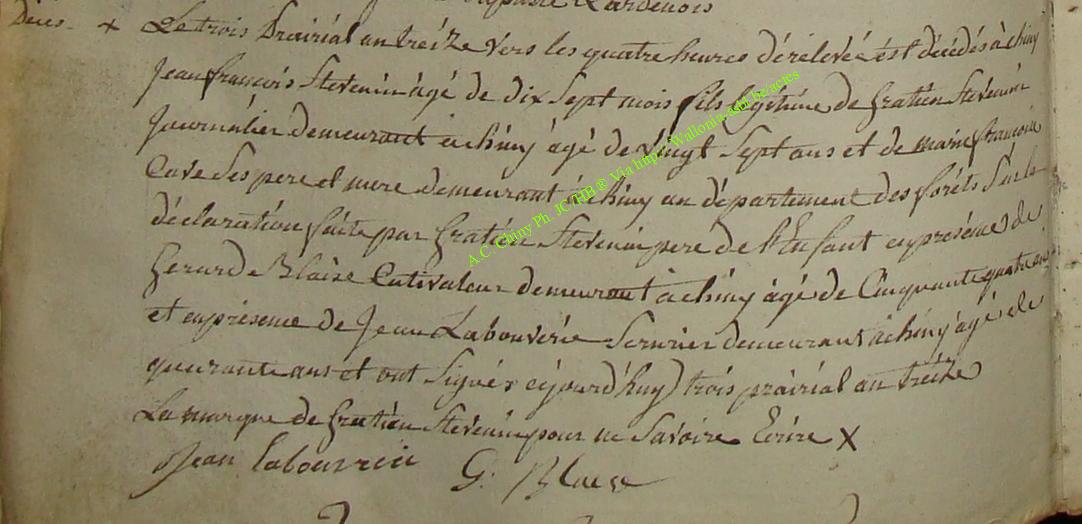 Lardenois
Déces + Le trois Prairial an treize vers les quatre heures dérelevée est décédés à chiny
Jean françois Stevenin âgé de dix Sept mois fils légitime de gratien Stevenin
Journalier demeurant à chiny âgé de vingt Sept ans et de marie françoise
Cave Ses pere et mere demeurant à chiny au département des forêts Sur la
déclaration faite par gratien Stevenin pere de l'Enfant en présence de
gerarde Blaise Cutivateur demeurant a chiny âgé de Cinquante quatre ans
et en présence de Jean Labouverie Serurier demeurant à chiny âgé de
quarante ans et ont Signés cejourd'huy trois prairial an treize
La marque de gratien Stevenin pour ne Savoire Ecrire X
Jean labouverie G. Blaise
A.C. Chiny Ph. JC HB ® Via http://Wallonia-asbl.be/actes